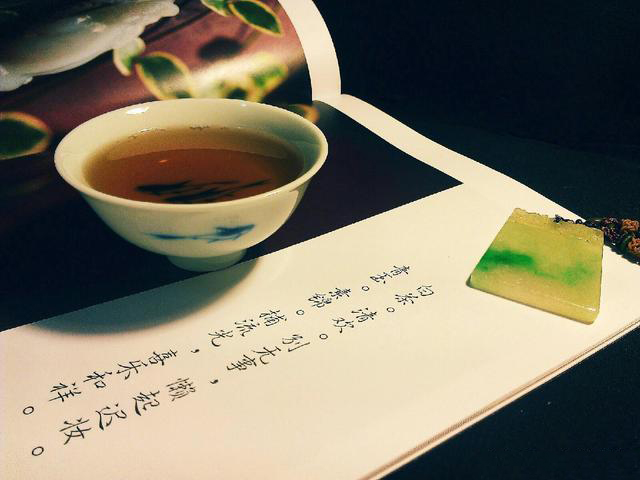 白茶。清欢。别无事，懒起迟妆。
青。素锦。捕流光，喜乐和祥。